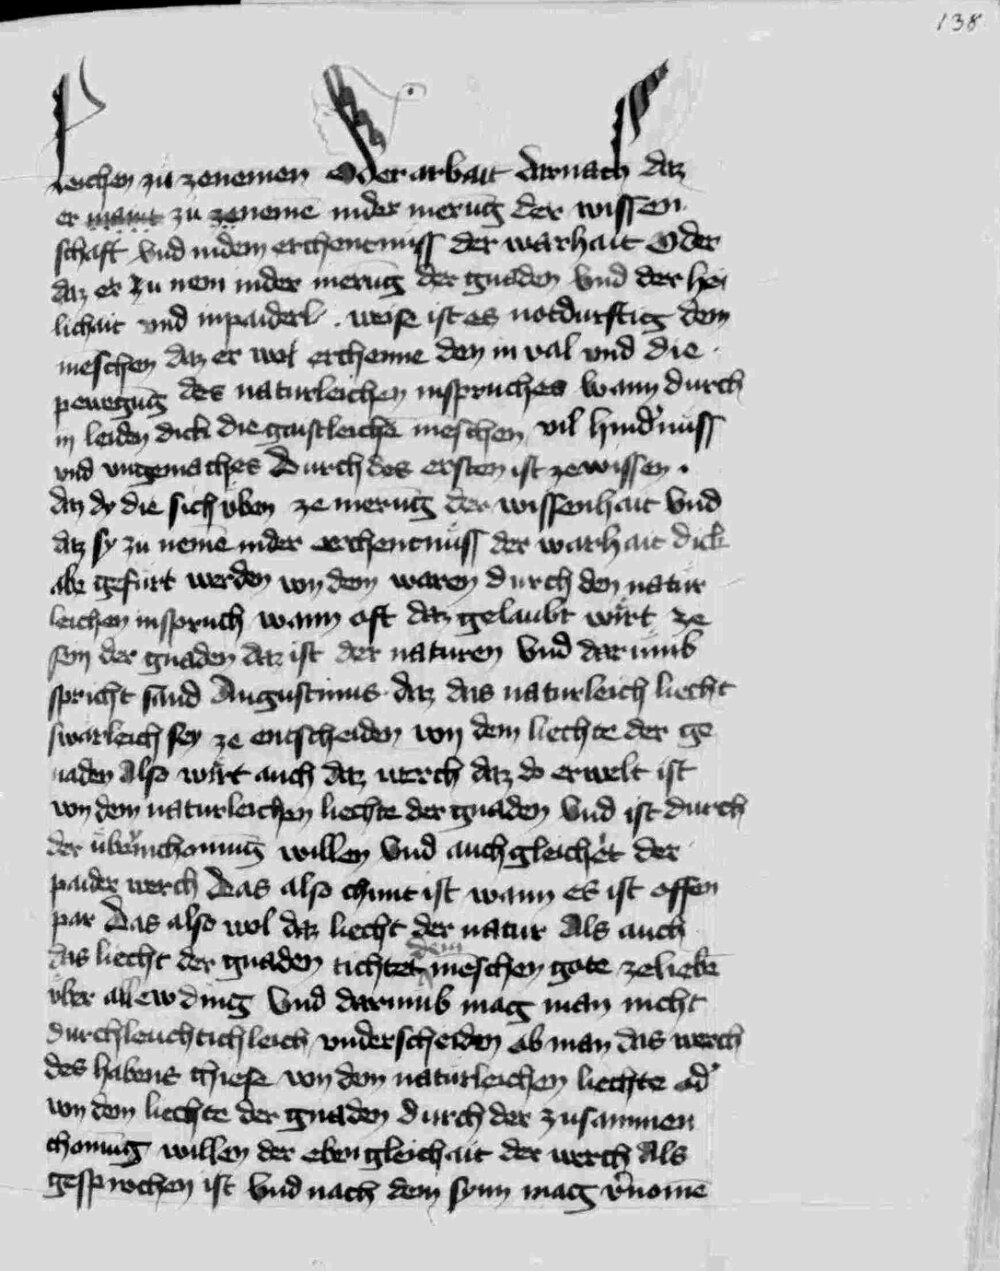 138
leichen zu zenemen Oder arbait darnach daz
er maint zu zeneme inder merūg der wissen
schaft vnd indem erchentnüss der warhait Oder
daz er zu nem inder merūg der gnaden vnd der hei
lichait vnd inpaiderl. weise ist es notdurftig dem
mēschen daz er wol erchenne den in val vnd die
pewegūg des naturleichen inspruches wann durch
in leiden dick die gaistleichē mēschen vil hindʼnüss
vnd vngemaches Durch des ersten ist zewissen.
daz dy die sich üben ze merūg der wissenhait vnd
daz sy zu nemē inder erchentnüss der warhait dick
abe gefürt werden von dem waren durch den natur
leichen inspruch wann oft daz gelaubt wirt ze
sein der gnaden daz ist der naturen vnd darumb
spricht sand Augustinus daz das naturleich liecht
swärleich sey ze entscheiden von dem liechte der ge
naden Also wirt auch daz werch daz do erwelt ist
von dem naturleichen liechte der gnaden vnd ist durch
der willen vnd auch gleichet der
paider werch Das also chunt ist wann es ist offen
par Das also wol daz liecht der natur Als auch
dem
das liecht der gnaden tichtet mēschen gote zeliebē
über allew ding vnd darumb mag man nicht
durchleuchtichleich vnderscheiden ob man das werch
des habens chiese von dem naturleichen liechte odʼ
von dem liechte der gnaden durch der zusammen
chomūg willen der ebengleichait der werch Als
gesprochen ist vnd nach dem synn mag vʼnomē